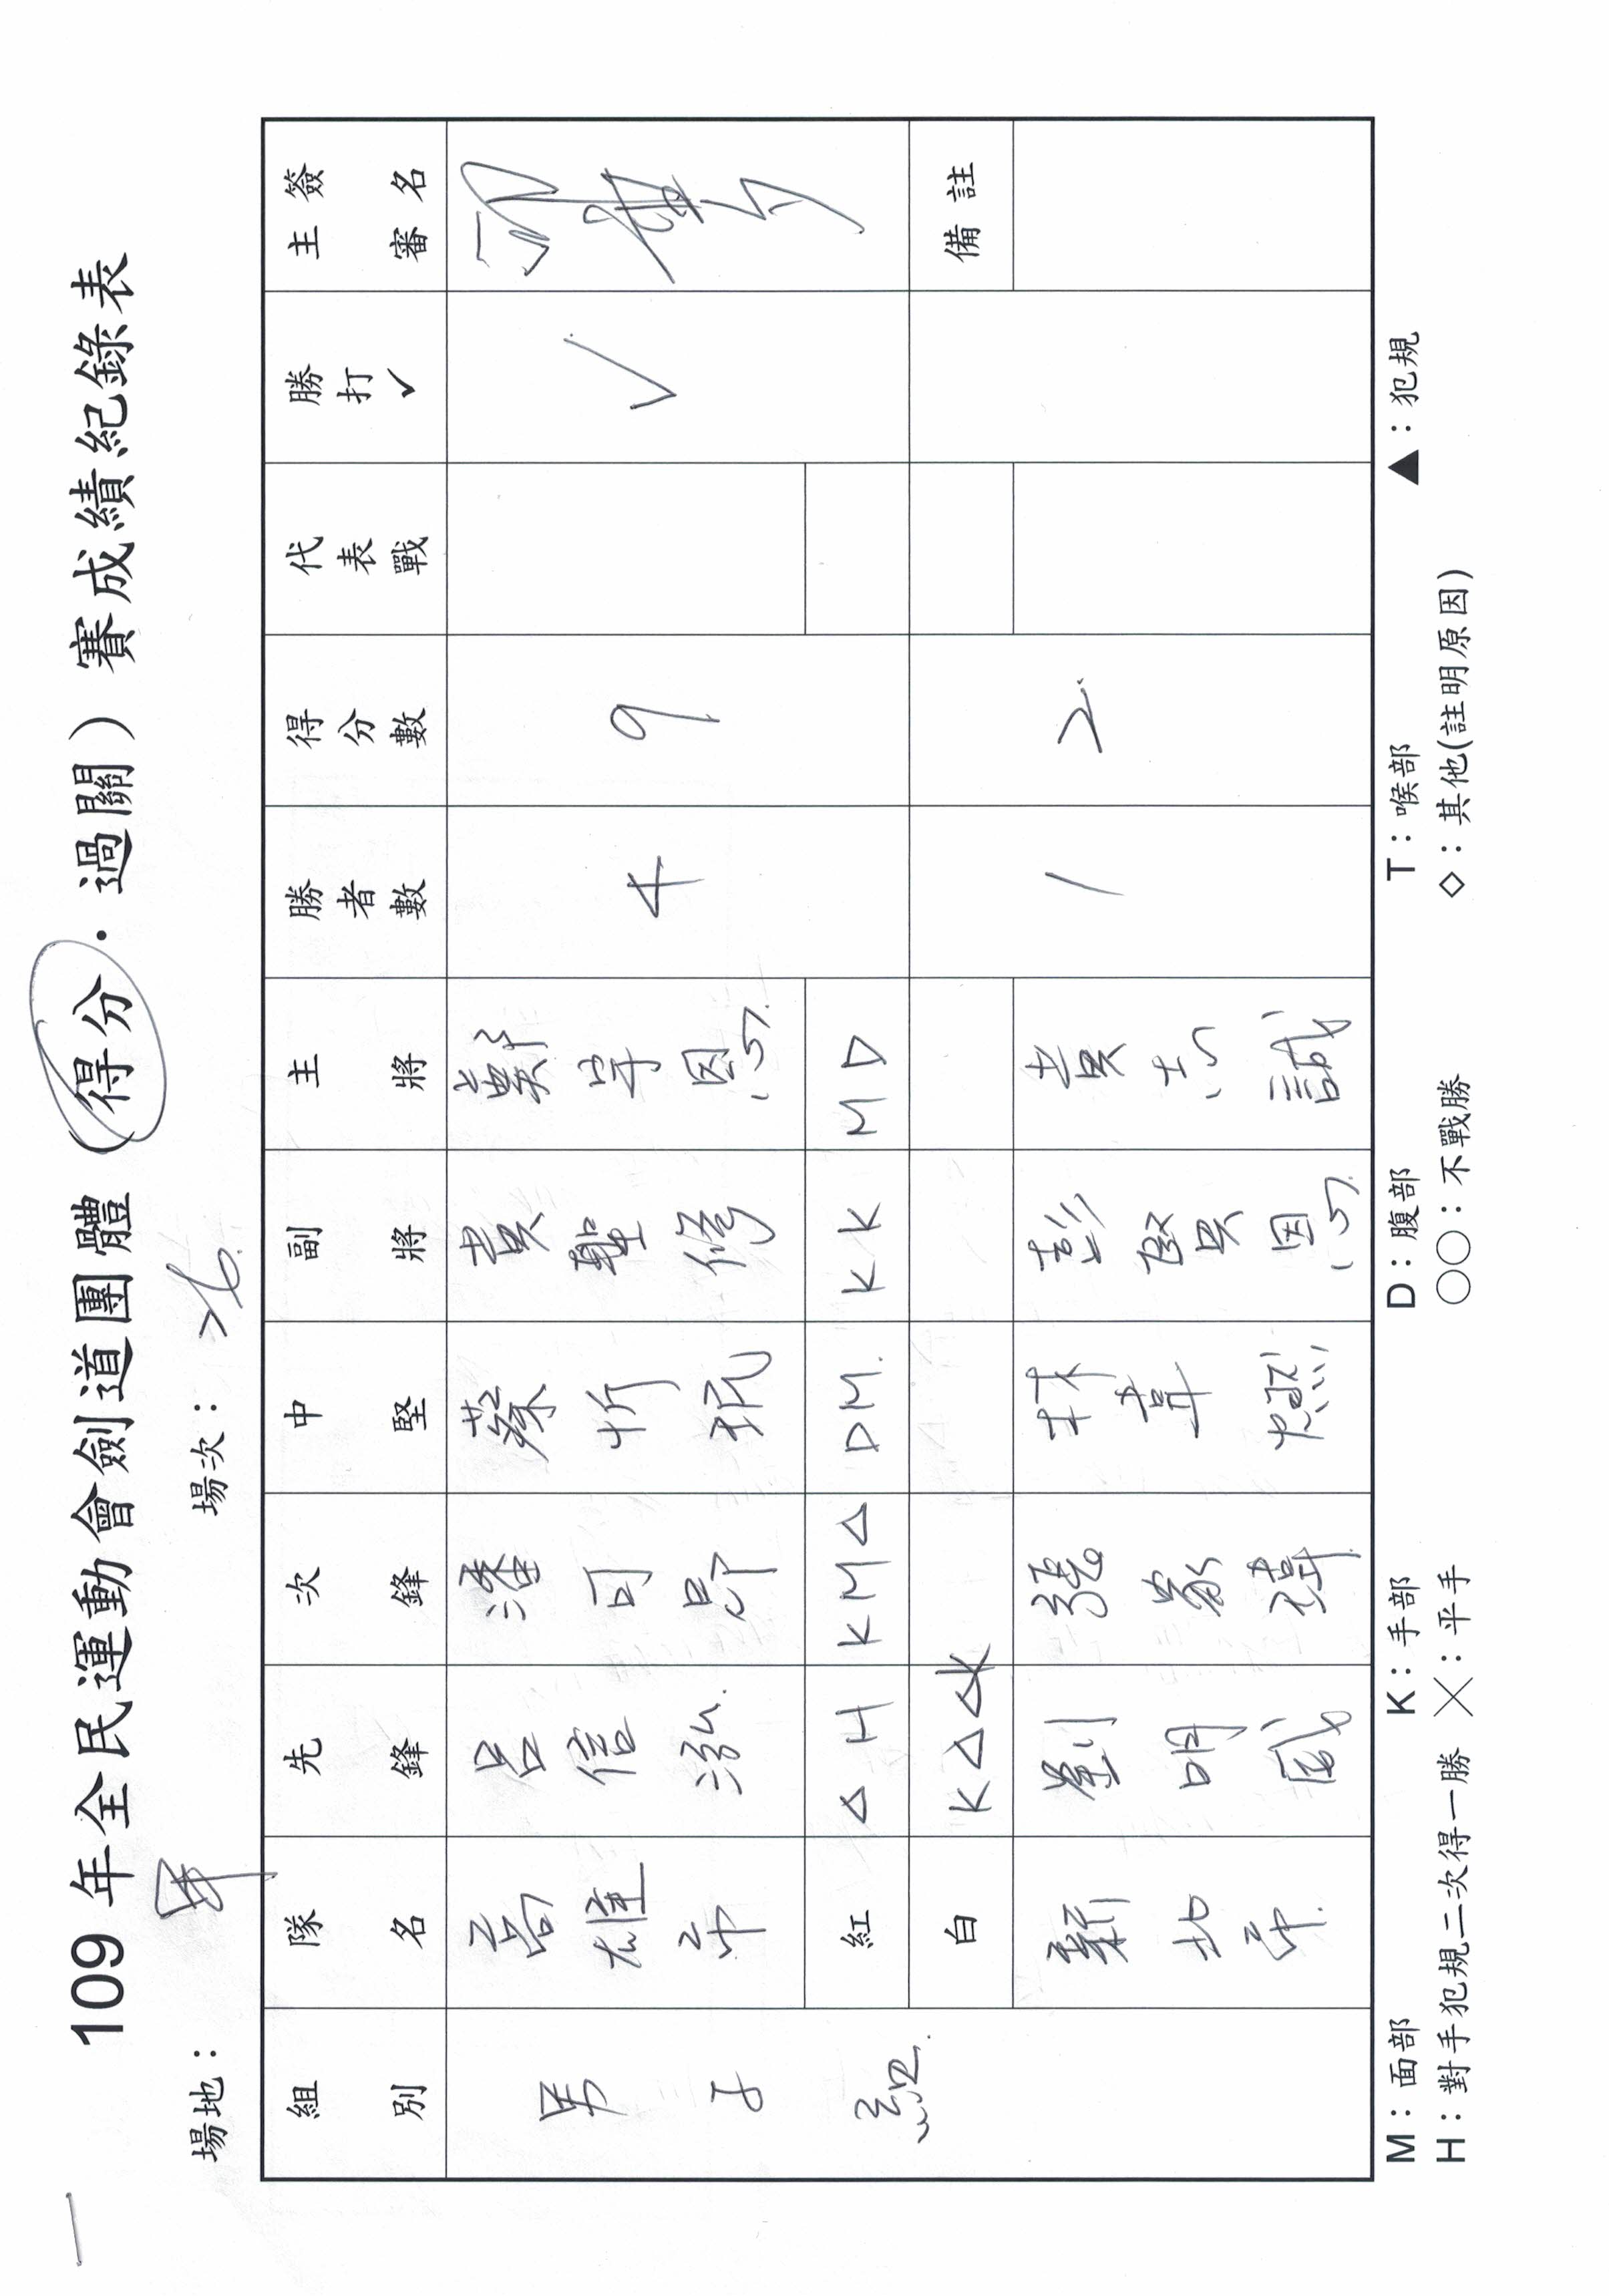 109 年全民運動會劍道團體（得分．過關）賽成績紀錄表
場地： 場次：26
組別 隊名 先鋒 次鋒 中堅 副將 主將 勝者數 得分數 代表戰 勝打✓ 主審簽名
男子組 高雄市 呂信泓 潘司昂 蔡忻珉 黃聖修 鄭宇恩 4 9 ✓
紅 △ H K M △ D M. K K M D
白 K △ △ K 備註
新北市 劉明威 張家瑋 林韋燃 彭賢恩 黃志誠 1 2
M：面部 K：手部 D：腹部 T：喉部 ▲：犯規
H：對手犯規二次得一勝 ╳：平手 ○○：不戰勝 ◇：其他(註明原因)